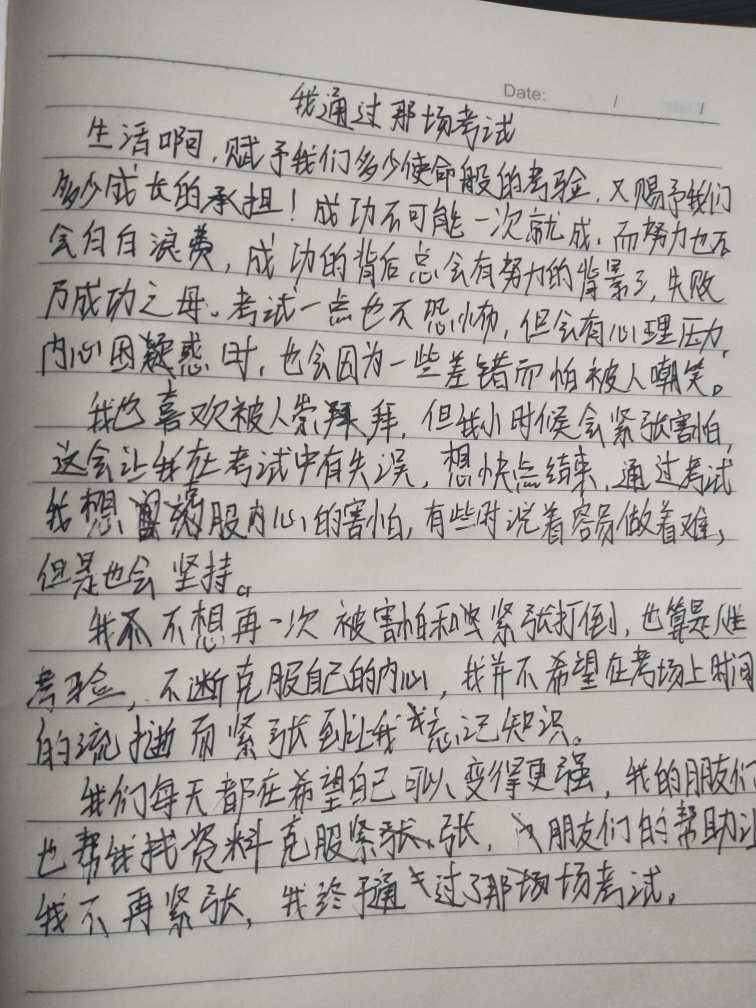 Date: / /
我通过那场考试
生活啊，赋予我们多少使命般的考验，又赐予我们
多少成长的承担！成功不可能一次就成，而努力也不
会白白浪费，成功的背后总会有努力的背景了，失败
乃成功之母。考试一点也不恐怖，但会有心理压力，
内心困疑惑时，也会因为一些差错而怕被人嘲笑。
我也喜欢被人崇拜，但我小时候会紧张害怕，
这会让我在考试中有失误，想快点结束，通过考试
我想 服内心的害怕，有些时说着容易做着难，
但是也会坚持。
我不想再一次被害怕和紧张打倒，也算是
考验，不断克服自己的内心，我并不希望在考场上时间
的流 而紧张到让我忘记知识。
我们每天都在希望自己可以变得更强，我的朋友们
也帮我找资料克服紧张，朋友们的帮助让
我不再紧张，我终于通过了那场场考试。